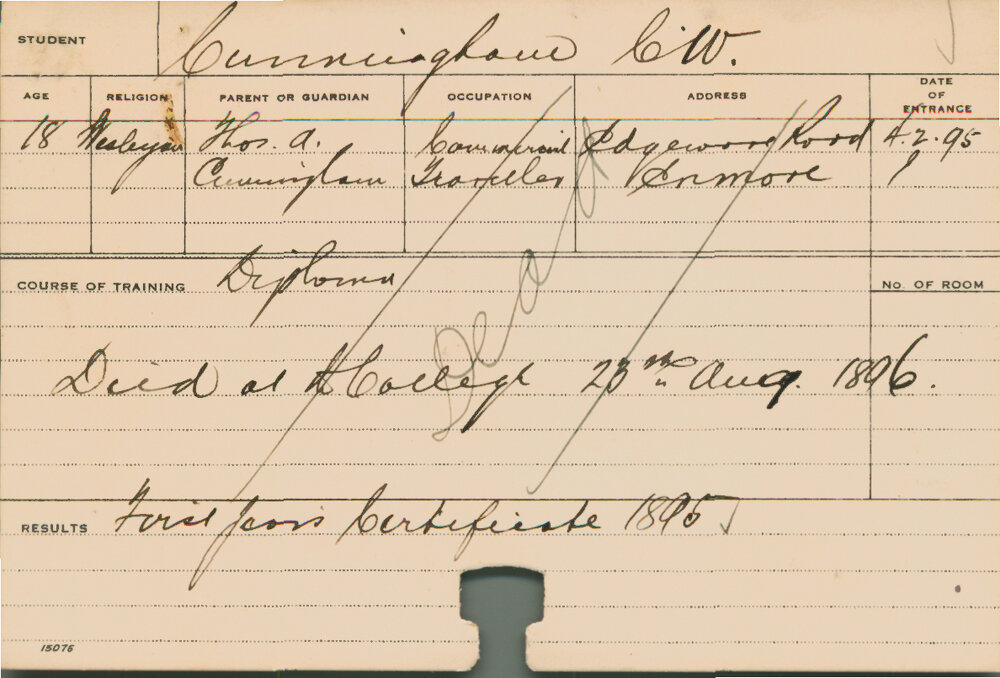 STUDENT Cunningham C.W.
AGE RELIGION PARENT OR GUARDIAN OCCUPATION ADDRESS DATE OF ENTRANCE
18 Wesleyan Thos. A. Commercial Edgewood Road 4.2.95
Cunningham Traveller Enmore
COURSE OF TRAINING Diploma No. OF ROOM
Dead
Died at College 23rd Aug. 1896.
RESULTS First Years Certificate 1895
15076